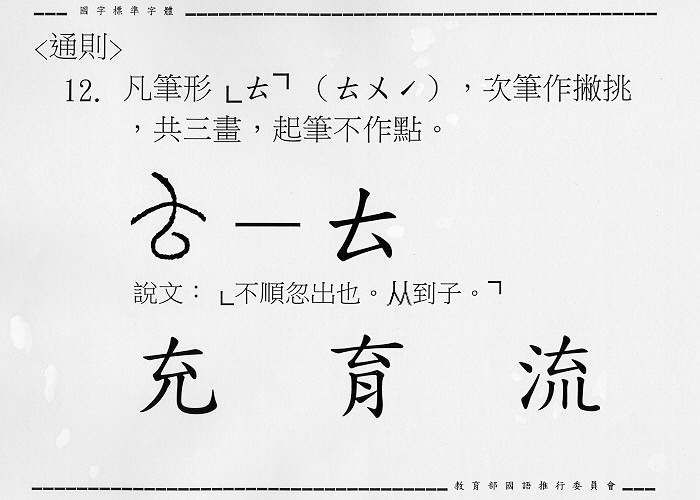 國字標準字體
<通則>
12. 凡筆形「𠫓」(ㄊㄨˊ),次筆作撇挑
,共三畫,起筆不作點。
𠫓—𠫓
說文:「不順忽出也。从到子。」
充 育 流
教育部國語推行委員會